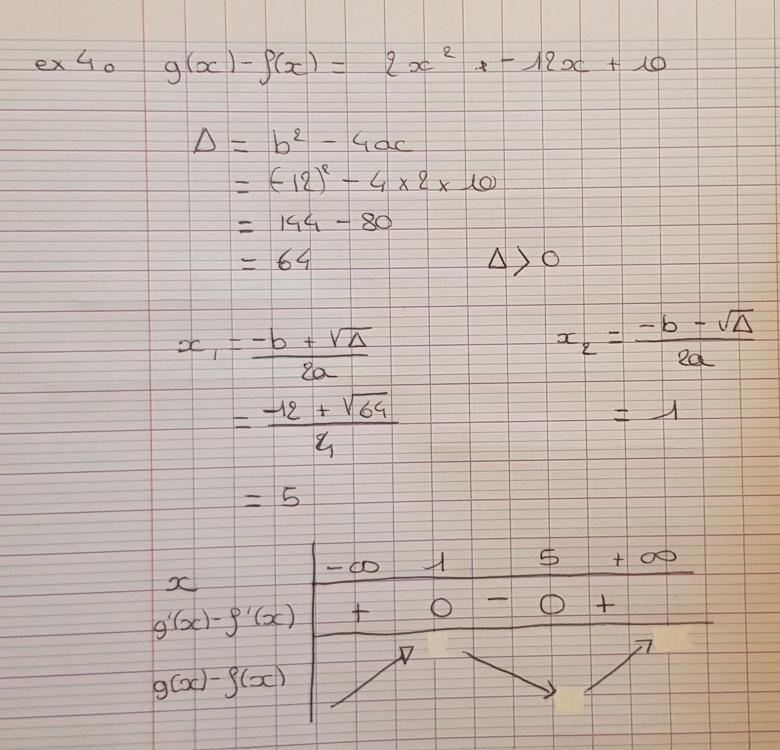 ex 4. g(x) - f(x) = 2x² + -12x + 10
Δ = b² - 4ac
= (-12)² - 4 × 2 × 10
= 144 - 80
= 64 Δ > 0
x₁ = (-b + √Δ) / 2a x₂ = (-b - √Δ) / 2a
= (-12 + √64) / 4 = 1
= 5
x -∞ 1 5 +∞
g'(x) - f'(x) + 0 - 0 +
g(x) - f(x)